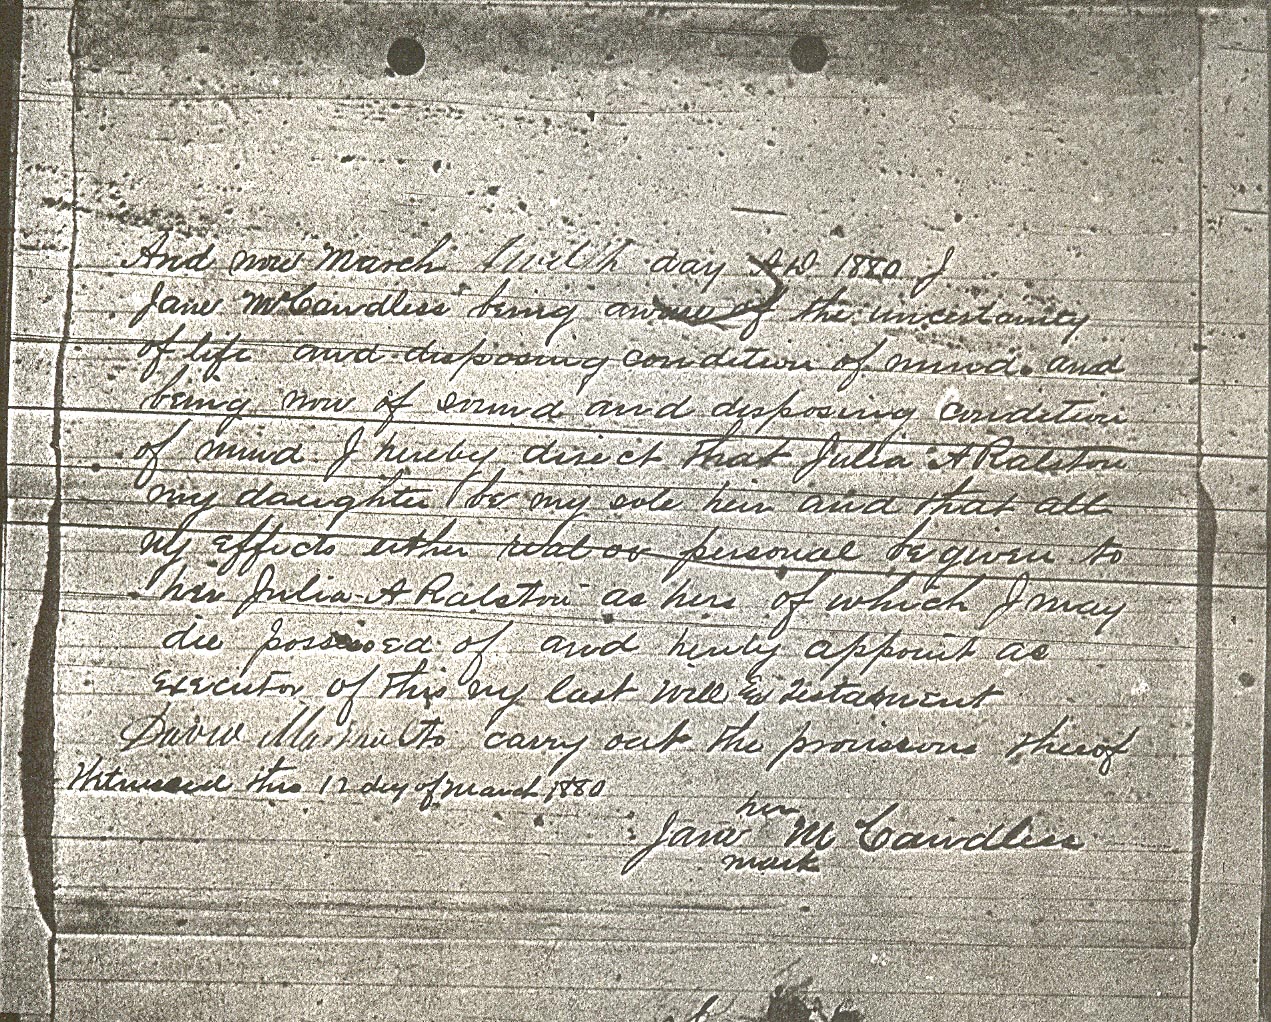 And now March twelth day AD 1880 I
Jane McCandless being aware of the uncertainty
of life and disposing condition of mind and
being now of sound and disposing condition
of mind I hereby direct that Julia A Ralston
my daughter be my sole heir and that all
my effects either real or personal be given to
her Julia A Ralston as hers of which I may
die possessed of and herby appoint as
executor of this my last Will & Testament
David to carry out the provisions thereof
Witnessed this 12 day of March 1880
her
Jane McCandless
mark